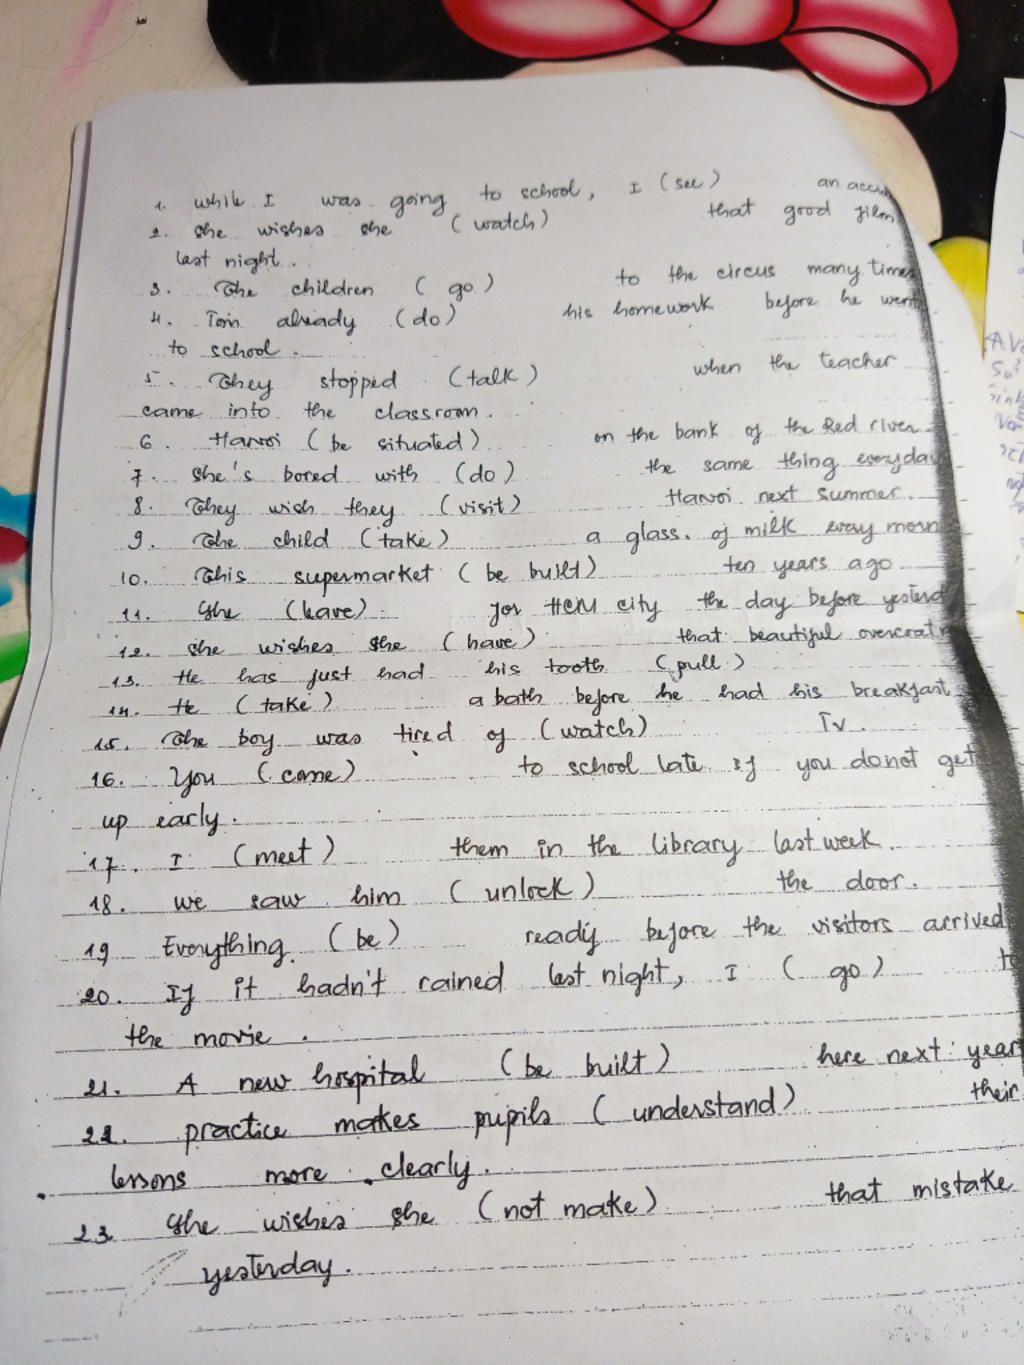 1. while I was going to school, I (see) an
2. She wishes she (watch) that good film
last night..
3. The children (go) to the circus many times
4. Tom already (do) his homework before he went
to school.
5. They stopped (talk) when the teacher
came into the classroom.
6. Hanoi (be situated) on the bank of the Red river
7. She's bored with (do) the same thing everyday
8. They wish they (visit) Hanoi next summer.
9. The child (take) a glass. of milk every
10. This supermarket (be built) ten years ago
11. She (leave) for HCM city the day before
12. she wishes she (have) that beautiful
13. He has just had his tooth (pull)
14. He (take) a bath before he had his breakfast
15. The boy was tired of (watch) Tv.
16. You (come) to school late if you donot get
up early.
17. I (meet) them in the library last week.
18. we saw him (unlock) the door.
19 Everything (be) ready before the visitors arrived
20. If it hadn't rained last night, I (go)
the movie.
21. A new hospital (be built) here next year
22. practice makes pupils (understand) their
lessons more clearly.
23 She wishes she (not make) that mistake
yesterday.